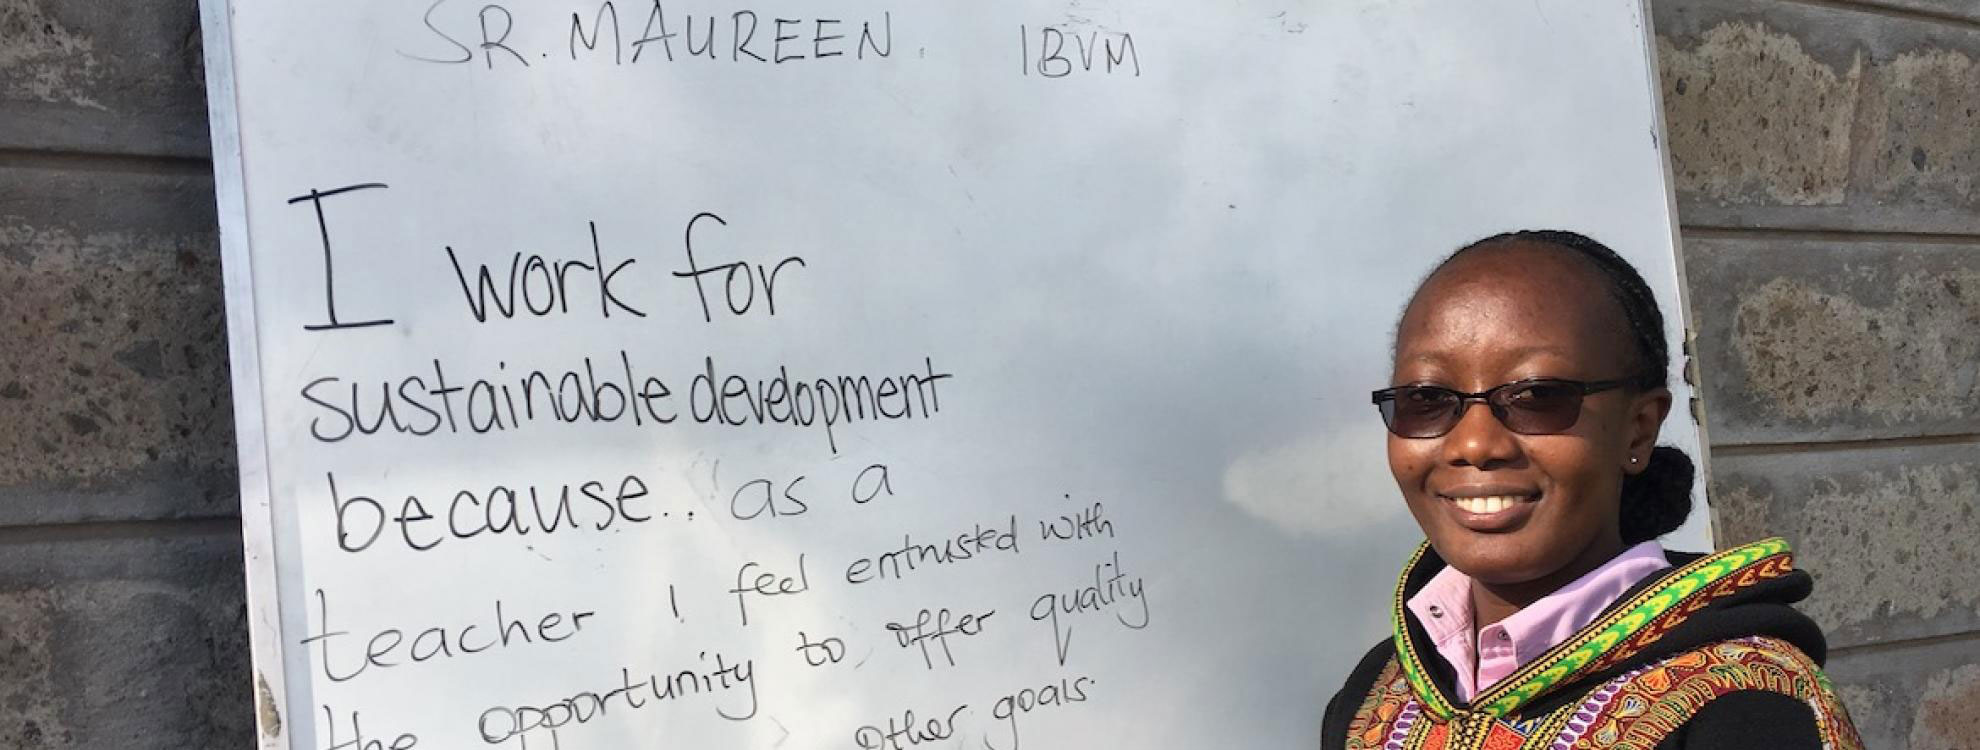 SR. MAUREEN. IBVM
I work for
sustainable development
because... as a
teacher I feel entrusted with
the opportunity to offer quality
other goals.